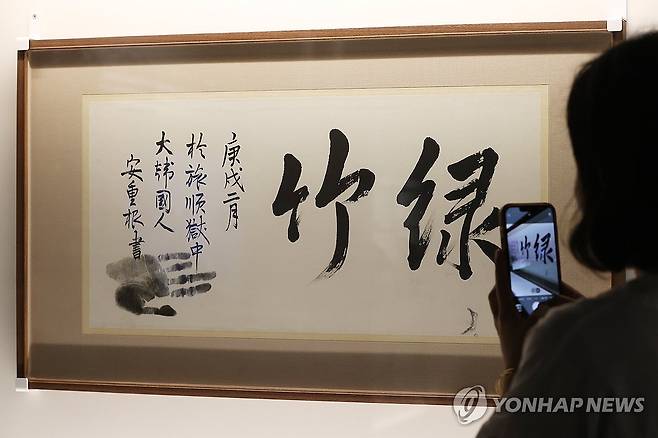 綠竹
庚戌二月
於旅順獄中
大韓國人
安重根書
綠竹
YONHAP NEWS